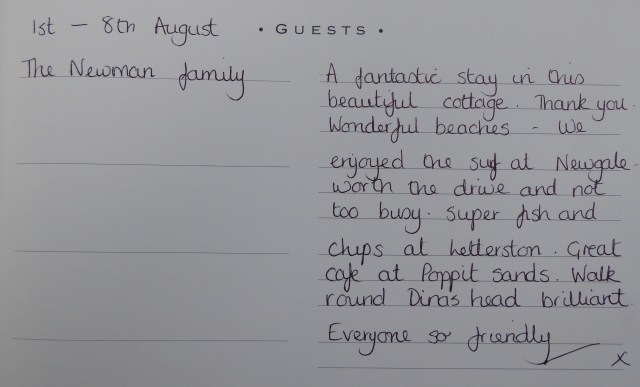 1st - 8th August
• GUESTS •
The Newman family
A fantastic stay in this
beautiful cottage. Thank you.
Wonderful beaches - We
enjoyed the surf at Newgale.
worth the drive and not
too busy. super fish and
chips at Letterston. Great
cafe at Poppit sands. Walk
round Dinas head brilliant
Everyone so friendly
x